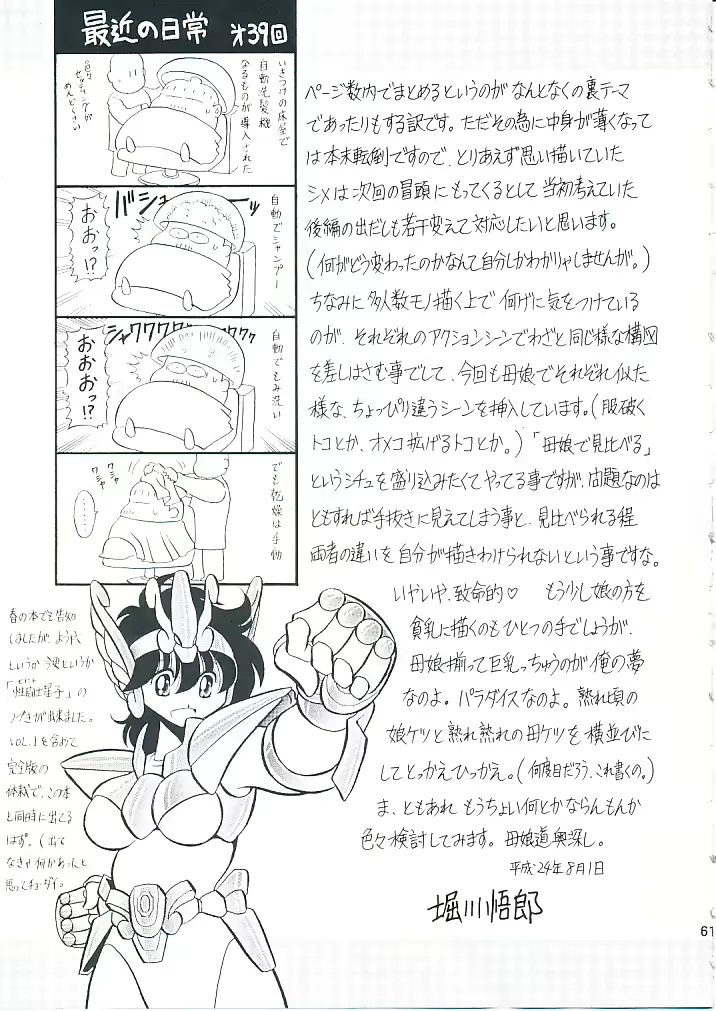 最近の日常 オ39回
いきつけの床屋で
自動洗髪機
なるものが導入された
色々
セッティングが
めんどくさい
自動でシャンプー
バシューーーッ
おおっ!?
自動でもみ洗い
シャワワワワワワ
おおおっ!?
でも乾燥は手動
ワシャ
ワシャ
……
ページ数内でまとめるというのが なんとなくの裏テーマ
であったりもする訳です。ただその為に中身が薄くなって
は本末転倒ですので、とりあえず思い描いていた
シメは次回の冒頭にもってくるとして 当初考えていた
後編の出だしも若干変えて対応したいと思います。
(何がどう変わったのかなんて自分しかわかりゃしませんが。)
ちなみに 多人数モノ描く上で 何げに気をつけている
のが、それぞれのアクションシーンでわざと同じ様な構図
を差しはさむ事でして、今回も母娘でそれぞれ似た
様な、ちょっぴり違うシーンを挿入しています。(服破く
トコとか、オメコ拡げるトコとか。)「母娘で見比べる」
というシチュを盛り込みたくてやってる事ですが、問題なのは
ともすれば手抜きに見えてしまう事と、見比べられる程
両者の違いを自分が描きわけられないという事ですな。
いやいや、致命的♡ もう少し娘の方を
貧乳に描くのもひとつの手でしょうが、
母娘揃って巨乳っちゅうのが俺の夢
なのよ。パラダイスなのよ。熟れ頃の
娘ケツと熟れ熟れの母ケツを横並びに
してとっかえひっかえ。(何度目だろう、これ書くの。)
ま、ともあれ もうちょい何とかならんもんか
色々検討してみます。母娘道奥深し。
平成24年8月1日
堀川悟郎
春の本でも告知
しましたが、ようやく
というか 今更というか
「性闘士星子」の
つづきが出来ました。
VOL.1を含めて
完全版の
体裁で、この本
と同時に出てる
はず。(出て
なきゃ何かあったと
思ってチョーダイ。
61